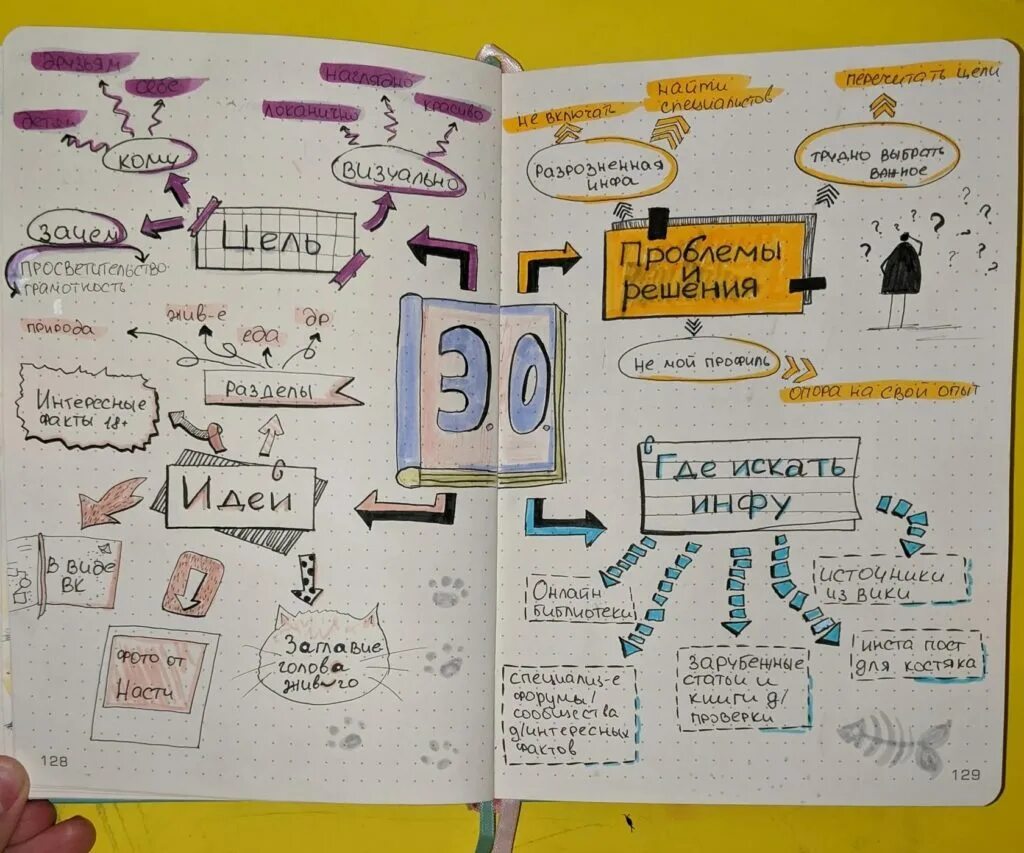 друзьям
себе
детям
кому
наглядно
локанично
красиво
визуально
зачем
Цель
просветительство
грамотность
природа
жив-е
еда
др
Разделы
Интересные
факты 18+
Идеи
В виде
ВК
фото от
Насти
Заглавие
голова
жив-го
128
З.О.
не включать
найти
специалистов
перечитать цели
Разрозненная
инфа
Трудно выбрать
важное
Проблемы
и
решения
? ? ? ? ? ? ? ?
не мой профиль
опора на свой опыт
Где искать
инфу
Онлайн
библиотеки
источники
из вики
специализ-е
форумы/
сообщества
д/интересных
фактов
зарубежные
статьи и
книги д/
проверки
инста пост
для костяка
129